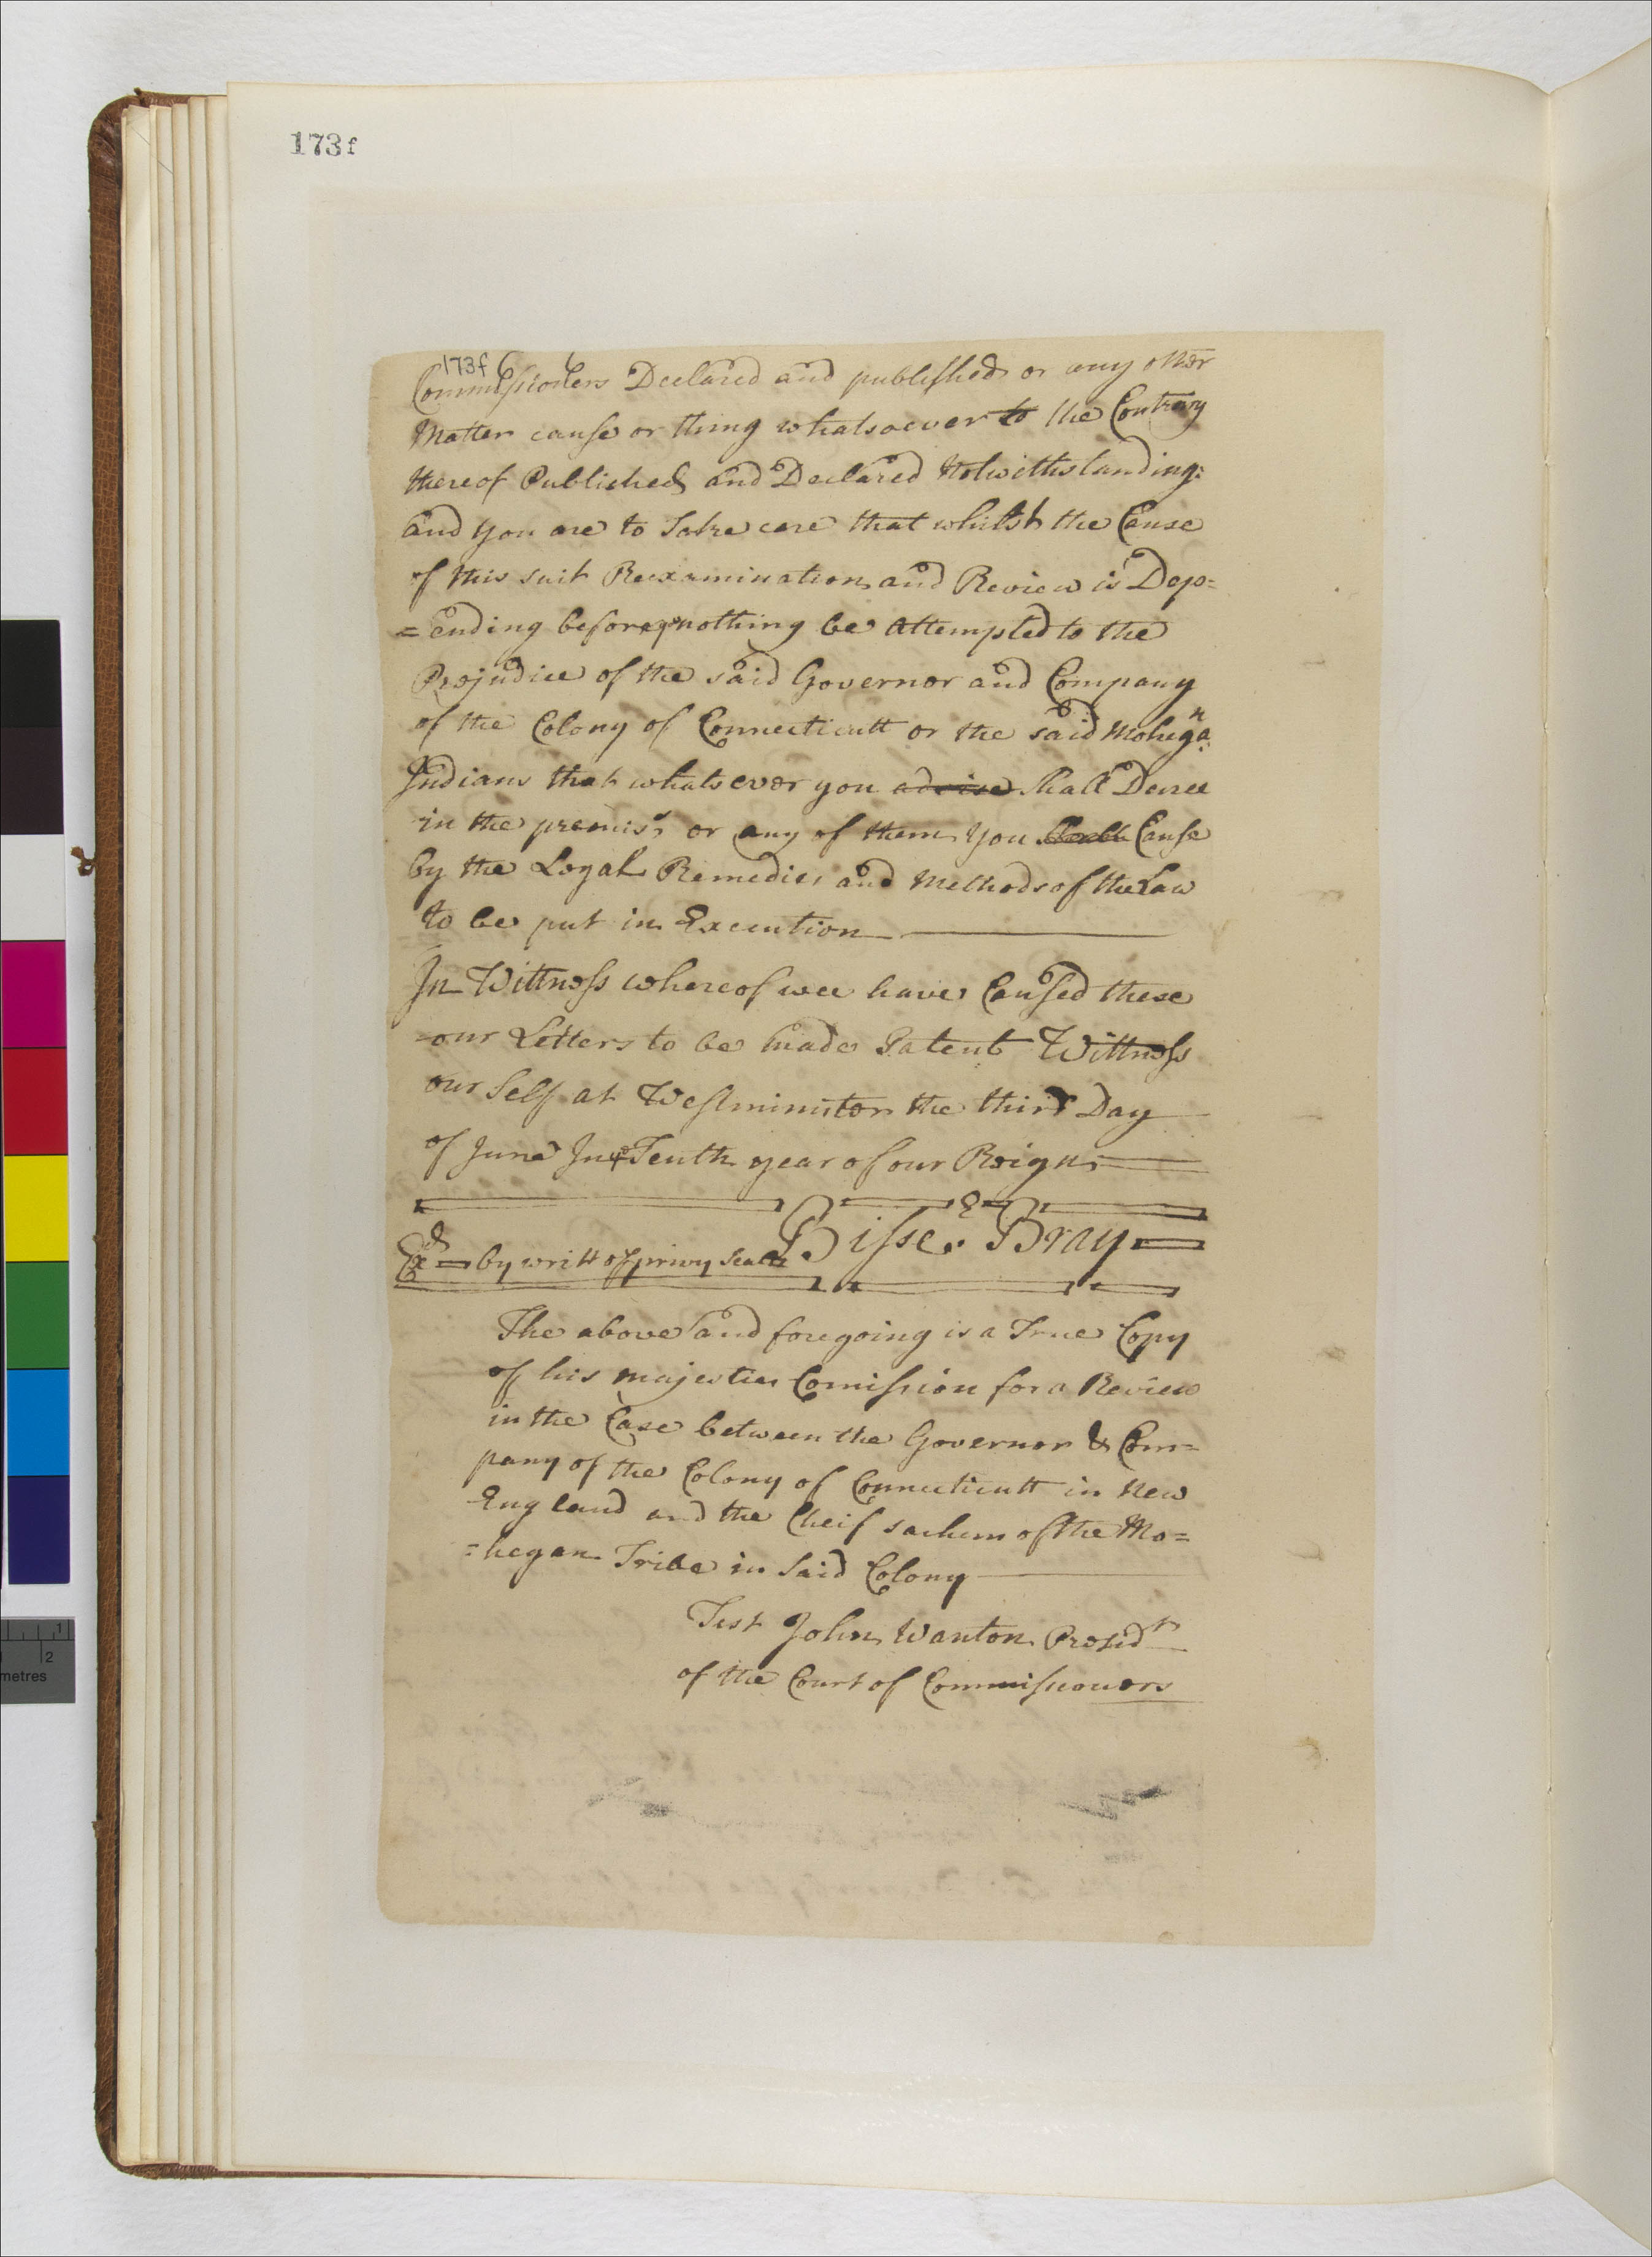 173f
173f
Commissioners Declared and published or any other
Matter cause or thing whatsoever to the Contrary
thereof Published and Declared Notwithstanding:
and you are to Take care that whilst the Cause
of this suit Reexamination and Review is Dep=
=ending before yo nothing be attempted to the
Prejudice of the said Governor and Company
of the Colony of Connecticutt or the said Mohegan
Indians that whatsoever you advise shall Decree
in the premiss or any of them you shall Cause
by the Legal Remedies and Methods of the Law
to be put in Execution
In Wittness whereof wee have Caused these
our Letters to be made Patent Wittness
our Self at Westminster the third Day
of June In ye Tenth year of our Reign
Bisse & Bray
Exd by writt of privy Seale
The above and foregoing is a True Copy
of his majesties Comission for a Review
in the Case between the Governor & Com=
pany of the Colony of Connecticutt in New
England and the Cheif sachem of the Mo=
=hegan Tribe in Said Colony
Test John Wanton Presidt
of the Court of Commissioners
1
2
metres